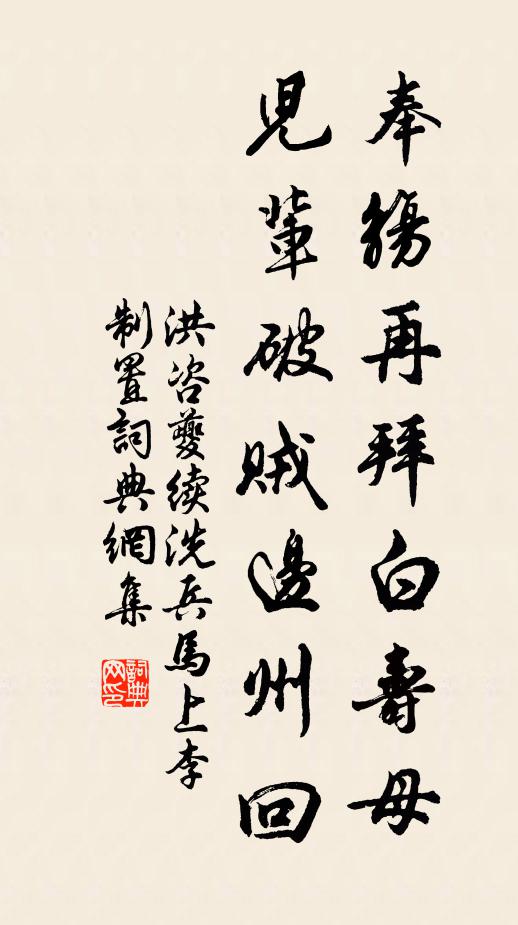 奉觴再拜白壽母
兒輩破賊邊州回
洪咨夔续洗兵馬上李
制置詞典網集
詞典
网印